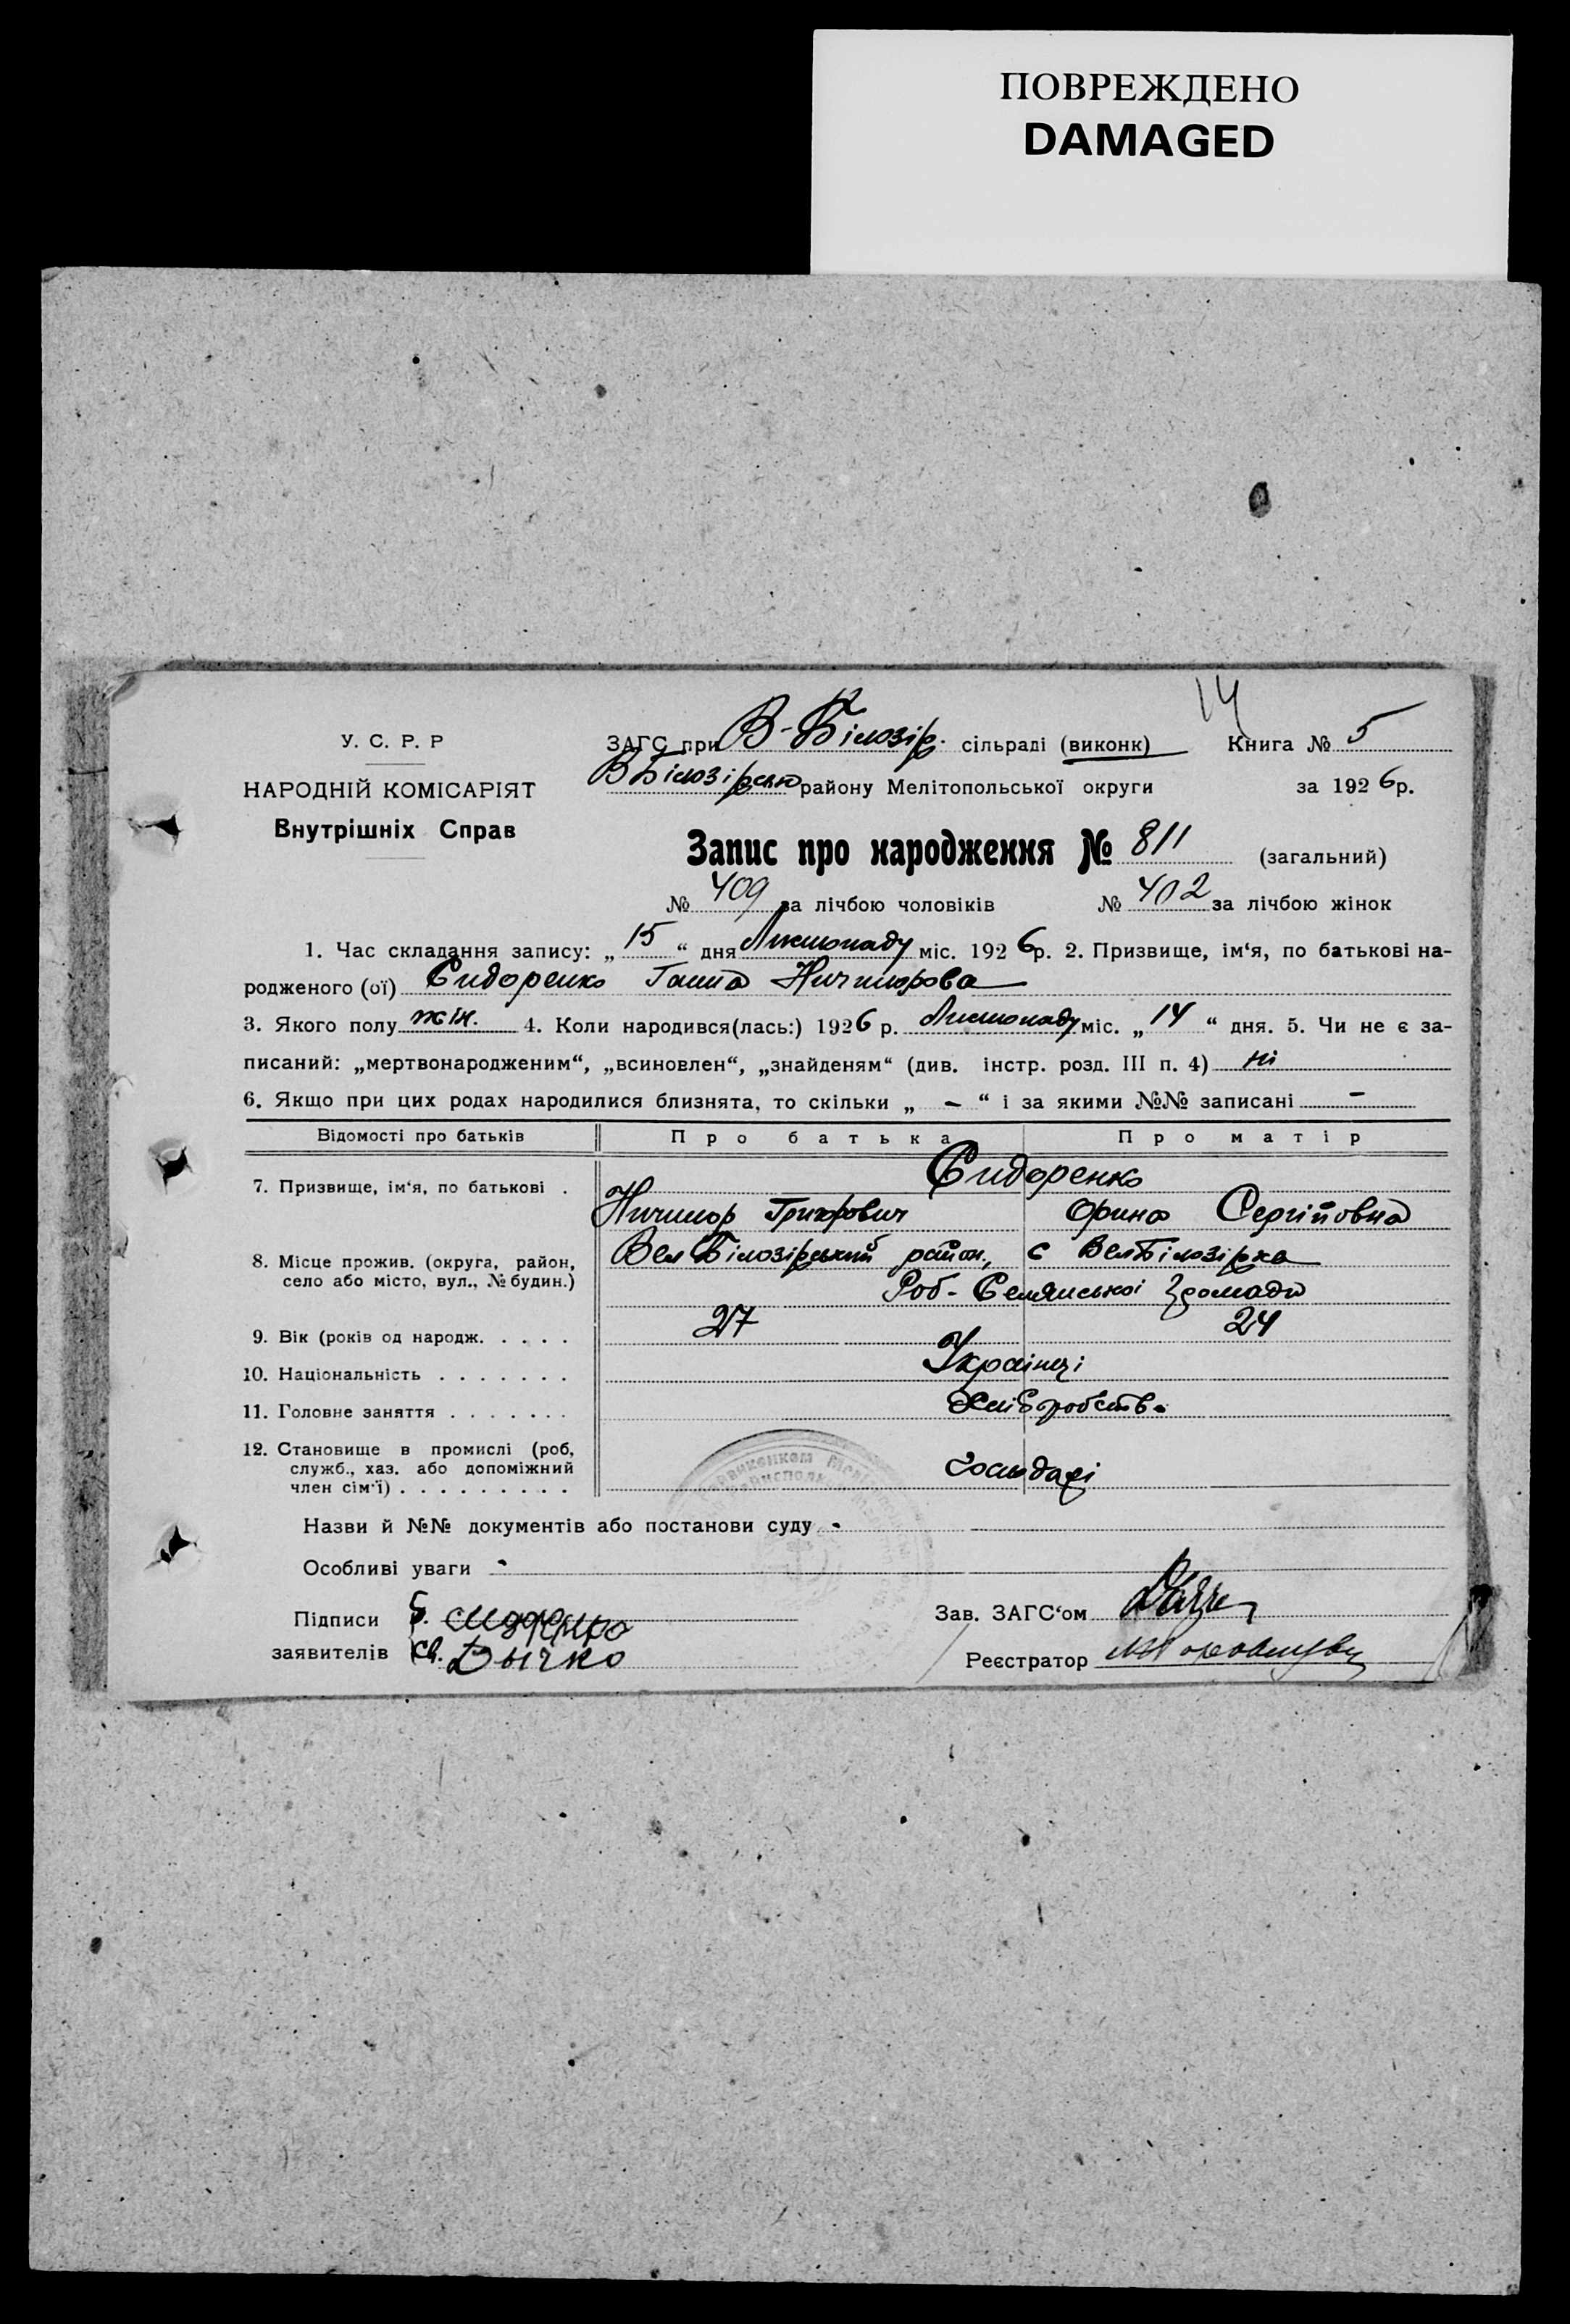 ПОВРЕЖДЕНО
DAMAGED
14
У. С. Р. Р
НАРОДНІЙ КОМІСАРІЯТ
Внутрішніх Справ
ЗАГС при В-Білозір. сільраді (виконк) Книга № 5
ВБілозірськ району Мелітопольської округи за 1926 р.
Запис про народження № 811 (загальний)
№ 409 за лічбою чоловіків № 402 за лічбою жінок
1. Час складання запису: „ 15 “ дня Листопаду міс. 1926 р. 2. Призвище, ім‘я, по батькові на-
родженого (ої) Сидоренко Ганна Ничипорова
3. Якого полу жін. 4. Коли народився(лась:) 1926 р. Листопаду міс. „ 14 “ дня. 5. Чи не є за-
писаний: „мертвонародженим“, „всиновлен“, „знайденям“ (див. інстр. розд. III п. 4) ні
6. Якщо при цих родах народилися близнята, то скільки „ — “ і за якими №№ записані —
Відомості про батьків Про батька Про матір
Сидоренко
7. Призвище, ім‘я, по батькові .
Ничипор Григорович Орина Сергіївна
8. Місце прожив. (округа, район,
село або місто, вул., № будин.)
Вел Білозірський район, с ВелБілозірка
Роб-Селянської громади
9. Вік (років од народж. . . . . 27 24
10. Національність . . . . . . . Українці
11. Головне заняття . . . . . . . Хліборобство
12. Становище в промислі (роб,
служб., хаз. або допоміжний
член сім‘ї) . . . . . . . . . господарі
Назви й №№ документів або постанови суду -
Особливі уваги -
Підписи
заявителів
Св. Дычко
Зав. ЗАГС‘ом
Реєстратор